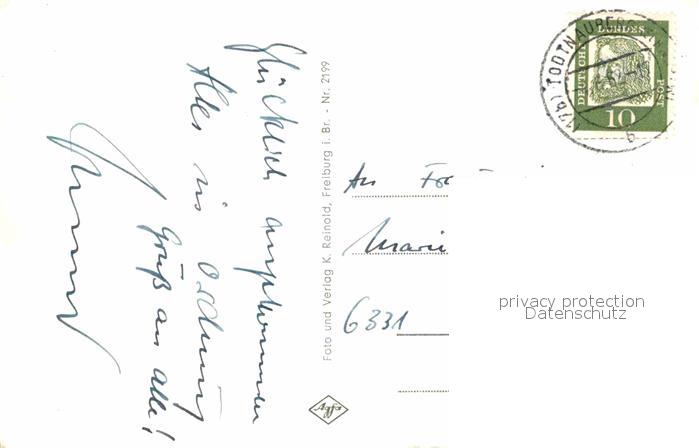 Glücklich angekommen
Alles in Ordnung
Gruß an alle!
Foto und Verlag K. Reinold, Freiburg i. Br. - Nr. 2199
Agfa
An
Marie
6331
privacy protection
Datenschutz
(17b) TODTNAUBERG
b
DEUTSCHE
BUNDES
POST
10